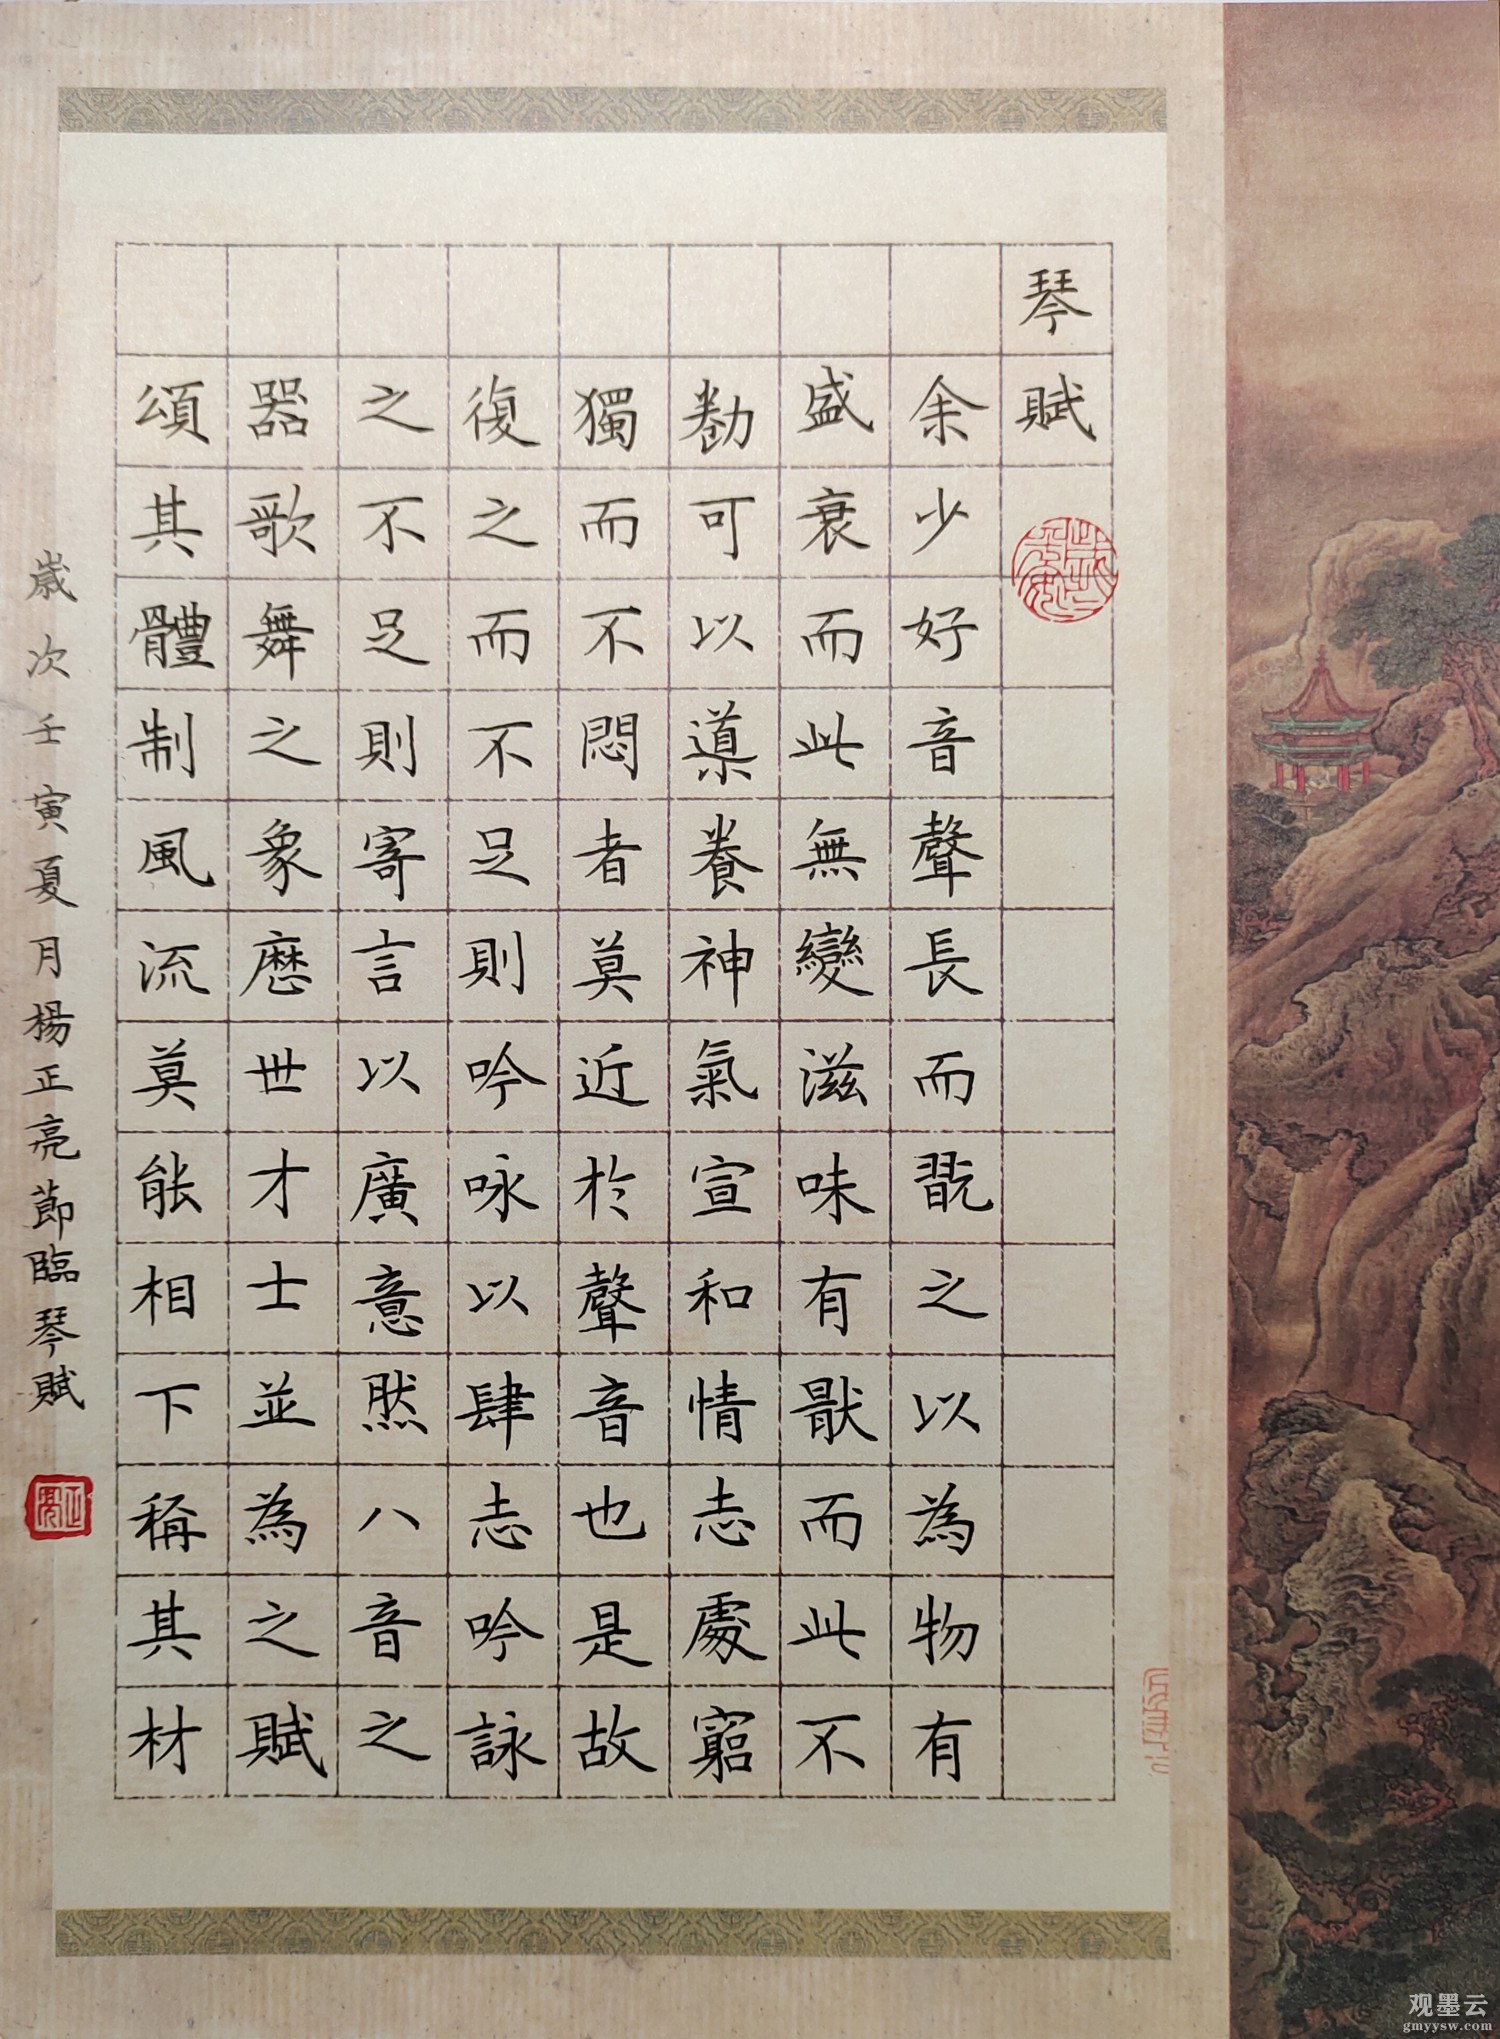 琴賦
余少好音聲長而翫之以為物有
盛衰而此無變滋味有猒而此不
勌可以導養神氣宣和情志處窮
獨而不悶者莫近於聲音也是故
復之而不足則吟咏以肆志吟詠
之不足則寄言以廣意然八音之
器歌舞之象歷世才士並為之賦
頌其體制風流莫能相下稱其材
歲次壬寅夏月楊正亮節臨琴賦
正亮
观墨云
gmyysw.com